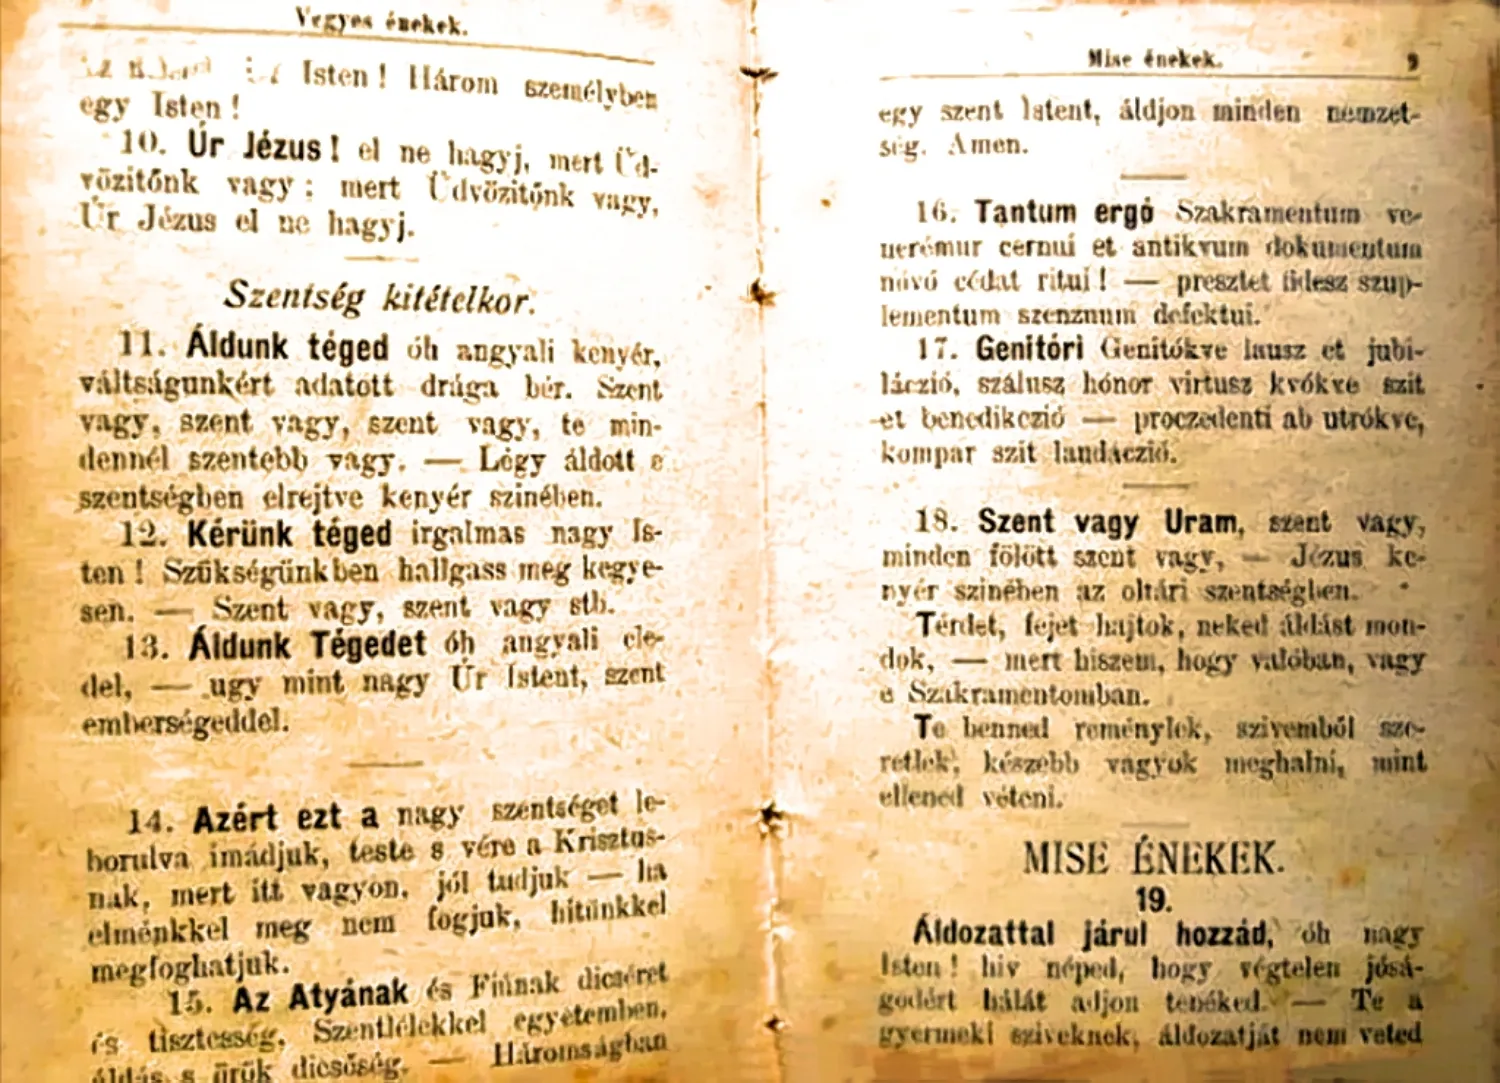 Vegyes énekek.
Isten! Három személyben
egy Isten!
10. Úr Jézus! el ne hagyj, mert Üd-
vözitőnk vagy; mert Üdvözitőnk vagy,
Úr Jézus el ne hagyj.
Szentség kitételkor.
11. Áldunk téged óh angyali kenyér,
váltságunkért adatott drága bér. Szent
vagy, szent vagy, szent vagy, te min-
dennél szentebb vagy. — Légy áldott e
szentségben elrejtve kenyér szinében.
12. Kérünk téged irgalmas nagy Is-
ten! Szükségünkben hallgass meg kegye-
sen. — Szent vagy, szent vagy stb.
13. Áldunk Tégedet óh angyali ele-
del, — ugy mint nagy Úr Istent, szent
emberségeddel.
14. Azért ezt a nagy szentséget le-
borulva imádjuk, teste s vére a Krisztus-
nak, mert itt vagyon, jól tudjuk — ha
elménkkel meg nem fogjuk, hitünkkel
megfoghatjuk.
15. Az Atyának és Fiúnak dicséret
és tisztesség, Szentlélekkel egyetemben,
áldás s örök dicsőség. — Háromságban
Mise énekek. 9
egy szent Istent, áldjon minden nemzet-
ség. Amen.
16. Tantum ergó Szakramentum ve-
nerémur cernui et antikvum dokumentum
nóvó cédat ritui! — presztet fidesz szup-
lementum szenznum defektui.
17. Genitóri Genitókve lausz et jubi-
láczió, szálusz hónor virtusz kvókve szit
et benedikczió — proczedenti ab utrókve,
kompar szit laudáczió.
18. Szent vagy Uram, szent vagy,
minden fölött szent vagy, — Jézus ke-
nyér szinében az oltári szentségben.
Térdet, fejet hajtok, neked áldást mon-
dok, — mert hiszem, hogy valóban, vagy
e Szakramentomban.
Te benned reménylek, szivemből sze-
retlek, készebb vagyok meghalni, mint
ellened véteni.
MISE ÉNEKEK.
19.
Áldozattal járul hozzád, óh nagy
Isten! hiv néped, hogy végtelen jósá-
godért hálát adjon tenéked. — Te a
gyermeki sziveknek, áldozatját nem veted